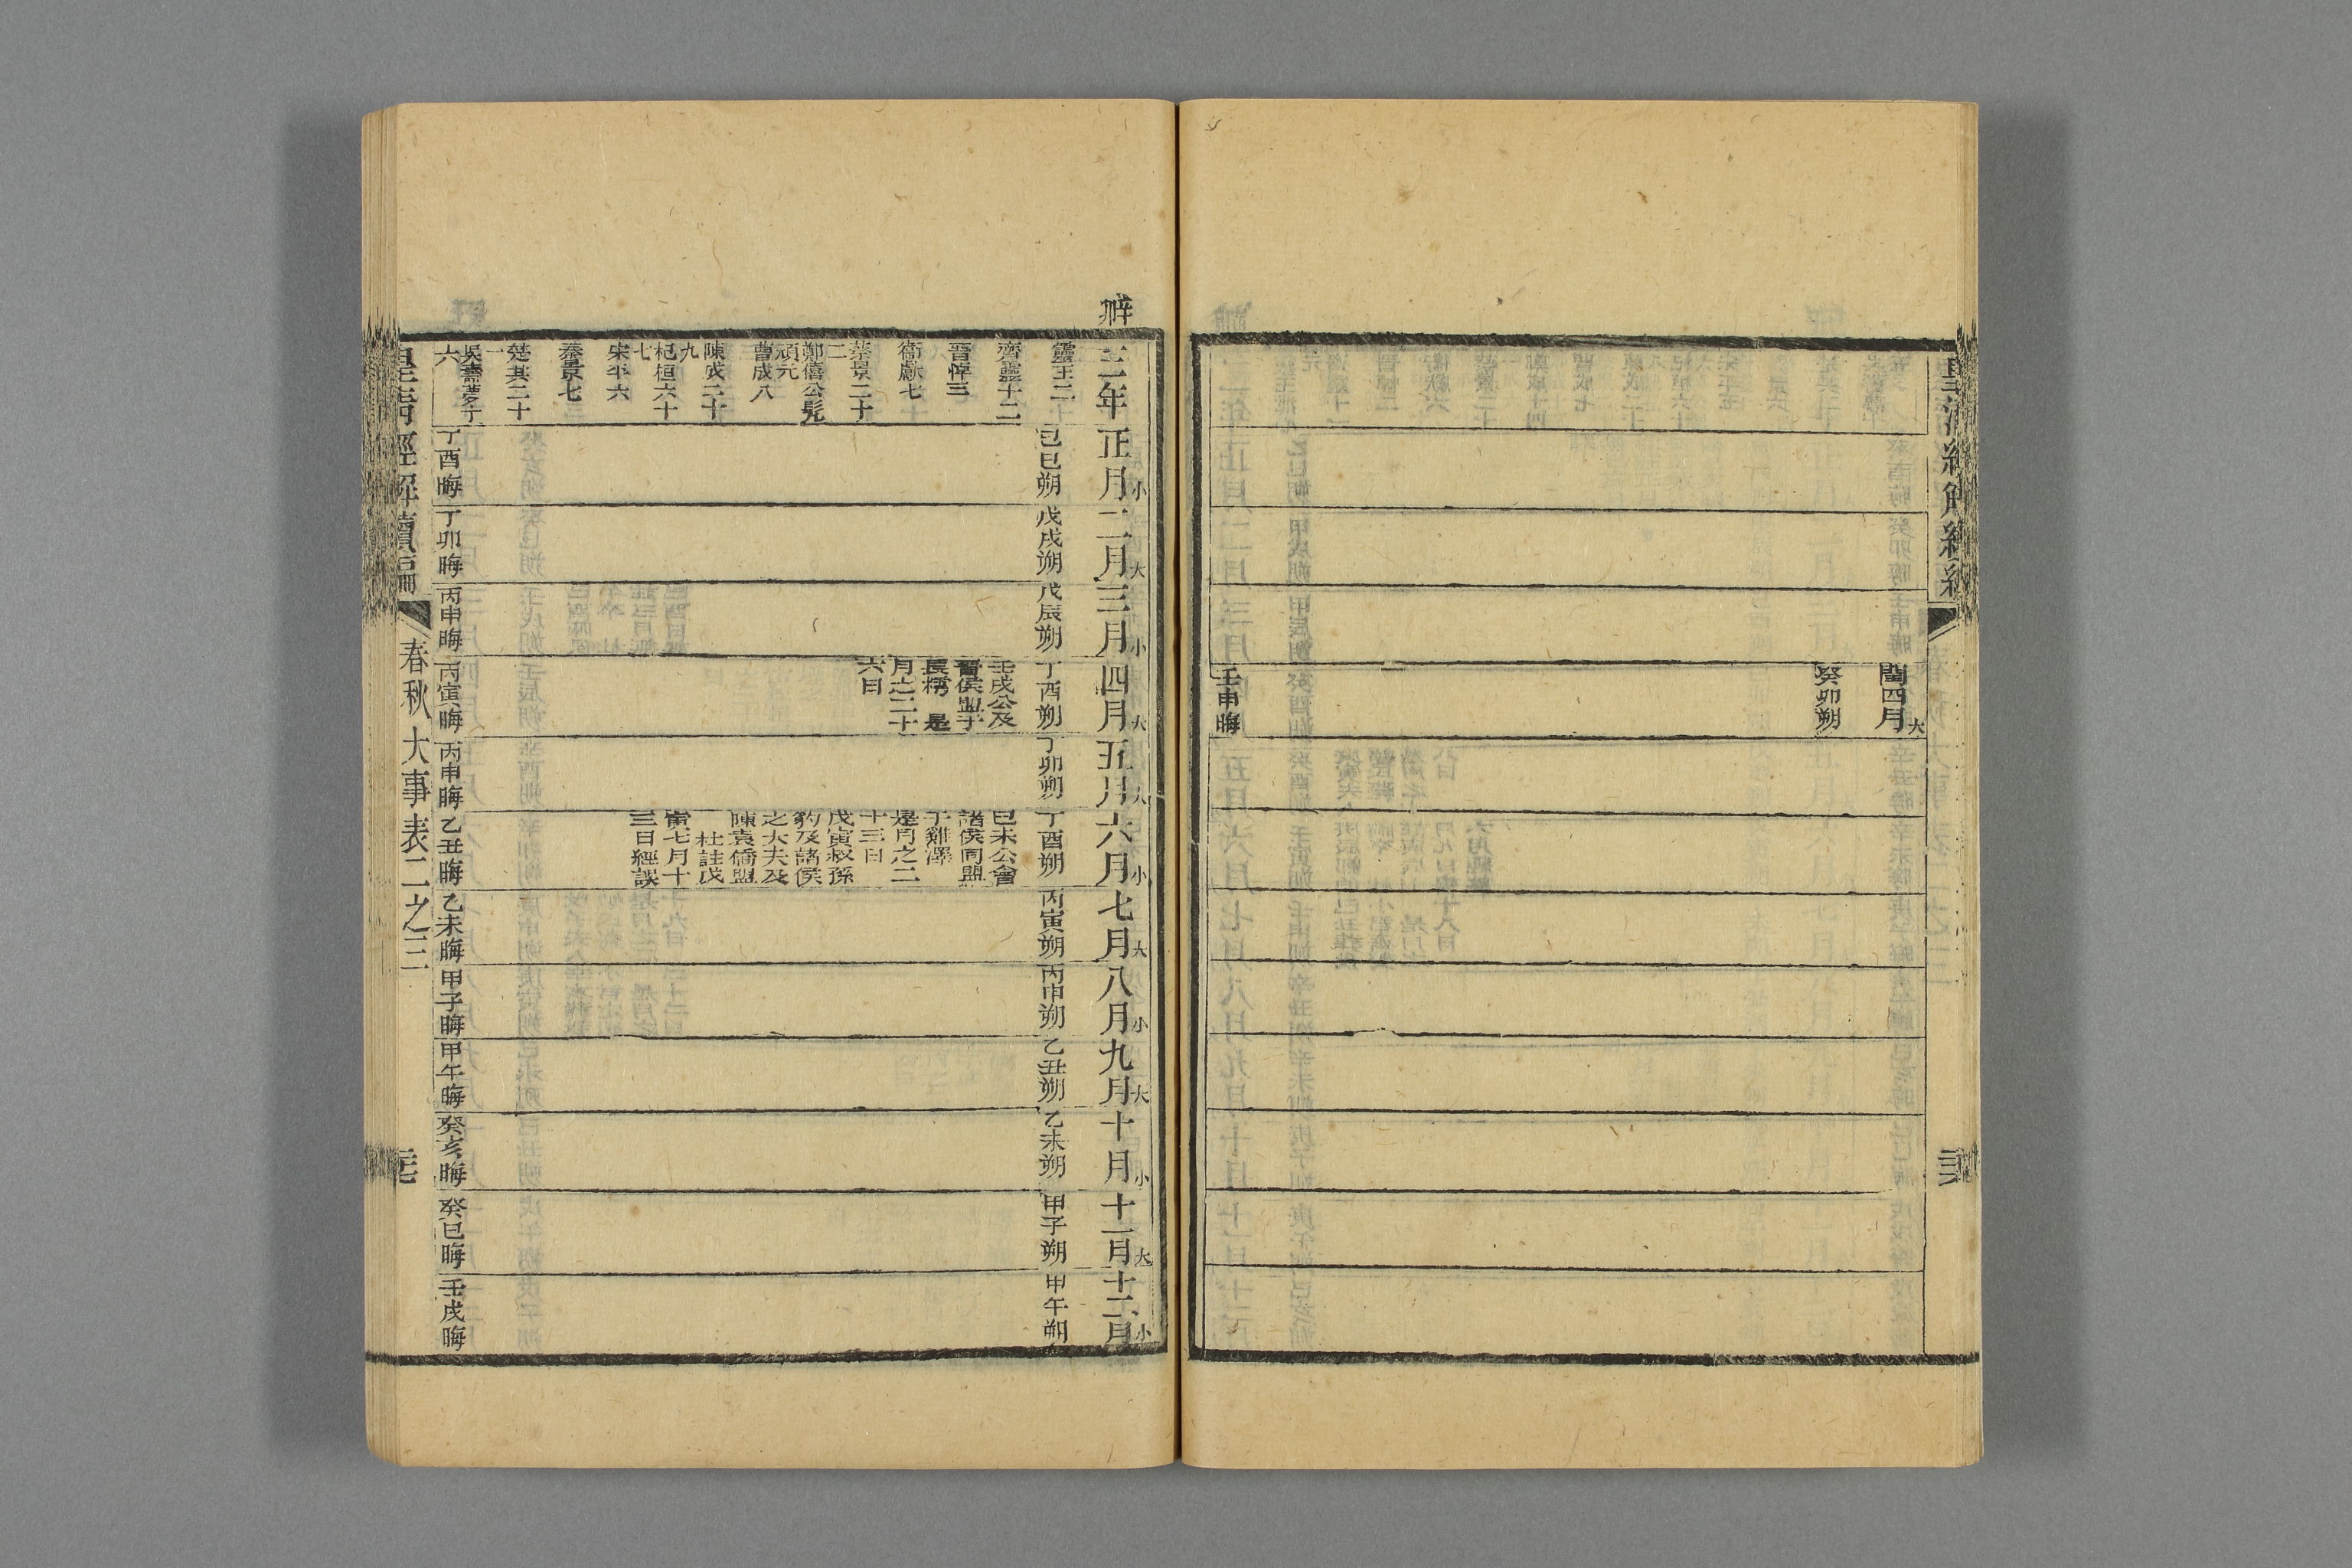 皇清經解續編
閏四月大
癸卯朔
壬申晦
三年
靈王二
齊靈十二
晉悼三
衞獻七
蔡景二十
二
鄭僖公髡
頑元
曹成八
陳成二十
九
杞桓六十
七
宋平六
秦景七
楚共二十
一
吳壽夢十
六
正月小
己巳朔
丁酉晦
二月大
戊戌朔
丁卯晦
三月小
戊辰朔
丙申晦
四月大
丁酉朔
壬戌公及
晉侯盟于
長樗 是
月之二十
六日
丙寅晦
五月大
丁卯朔
丙申晦
六月小
丁酉朔
己未公會
諸侯同盟
于雞澤
是月之二
十三日
戊寅叔孫
豹及諸侯
之大夫及
陳袁僑盟
杜註戊
寅七月十
三日經誤
乙丑晦
七月大
丙寅朔
乙未晦
八月小
丙申朔
甲子晦
九月大
乙丑朔
甲午晦
十月小
乙未朔
癸亥晦
十一月大
甲子朔
癸巳晦
十二月小
甲午朔
壬戌晦
皇清經解續編
春秋大事表二之三